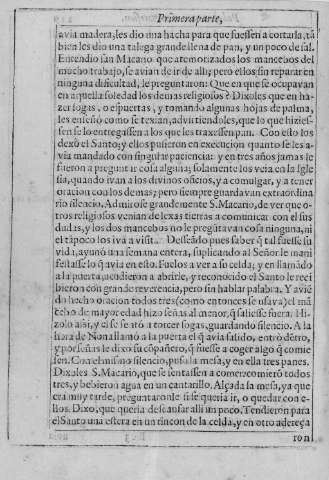 Primera parte,
avia madera, les dio una hacha para que fuessen a cortarla, tã
bien les dio una talega grande llena de pan, y un poco de sal.
Entendio san Macario que atemorizados los mancebos del
mucho trabajo, se avian de ir de alli; pero ellos sin reparar en
ninguna dificultad, le preguntaron: Que en que se ocupavan
en aquella soledad los demas religiosos? Dixoles que en ha-
zer sogas, o espuertas, y tomando algunas hojas de palma,
les enseñò como se texian, advirtiendoles, que lo que hizies-
sen se lo entregassen a los que les traxessen pan. Con esto los
dexò el Santo; y ellos pusieron en execucion quanto se les a-
via mandado con singular paciencia: y en tres años jamas le
fueron a pregunt ir cosa alguna; solamente los veia en la Igle
sia, quando ivan a los divinos oficios, y a comulgar, y a tener
oracion con los demas; pero siempre guardavan extraordina
rio silencio. Admiròse grandemente S. Macario, de ver que o-
tros religiosos venian de lexas tierras a comunicar con el sus
dudas, y los dos mancebos no le pregũtavan cosa ninguna, ni
el tãpoco los iva a visit.. Desseãdo pues saber q̃ tal fuesse su
vida, ayunò una semana entera, suplicando al Señor le mani
festasse lo q̃ avia en esto. Fuelos a ver a su celda; y en llamãdo
a la puerta, acudieron a abrirle, y reconociendo el Santo le reci
bieron con grande reverencia, pero sin hablar palabra. Y aviẽ
do hecho oracion todos tres (como entonces se usava) el mã
cebo de mayor edad hizo señas al menor, q̃ saliesse fuera. Hi-
zolo assi, y el se sentò a torcer sogas, guardando silencio. A la
hora de Nona llamò a la puerta el q̃ avia salido, entrò dẽtro,
y por señas le dixo su cõpañero, q̃ fuesse a coger algo q̃ comie
ssen. Con el mismo silencio, puso la mesa, y en ella tres panes.
Dixoles S. Macario, que se sentassen a comer: comierõ todos
tres, y bebieron agua en un cantarillo. Alçada la mesa, ya que
era muy tarde, preguntaronle si se queria ir, o quedar con e-
llos. Dixo, que queria descansar alli un poco. Tendieron para
el Santo una estera en un rincon de la celda, y en otro adereça
ron